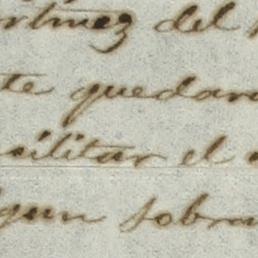 rtinez del
te quedan
silitar el
gun sobra